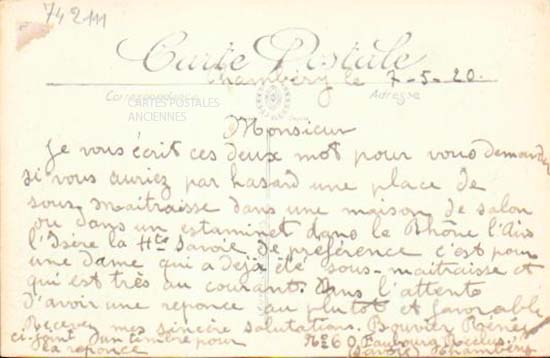 74 2 111
Carte Postale
Chambéry le 7-5-20.
Correspondance
Adresse
CARTES POSTALES
ANCIENNES
Monsieur
Je vous écrit ces deux mot pour vous demander
si vous auriez par hasard une place de
sous maitraisse dans une maison de salon
ou dans un estaminet dans le Rhône l'Ain
l'Isère la Hte Savoie de préférence c'est pour
une dame qui a dejà été sous-maitraisse et
qui est très au courant. Dans l'attente
d'avoir une reponce au plutot et favorable
Recevez mes sincère salutations. Bouvier René
ci-joint un timbre pour
la reponce
N° 60 Faubourg Reclus
(Savoie) Chambéry